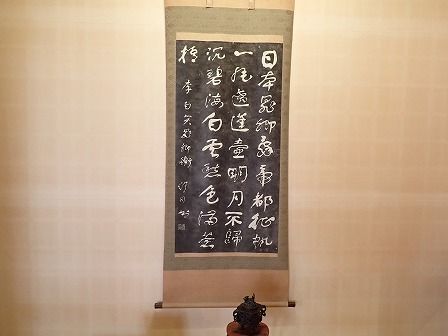 日本晁卿辞帝都征帆
一片遶蓬壷明月不歸
沉碧海白雲愁色満蒼
梧
李白哭晁卿衡